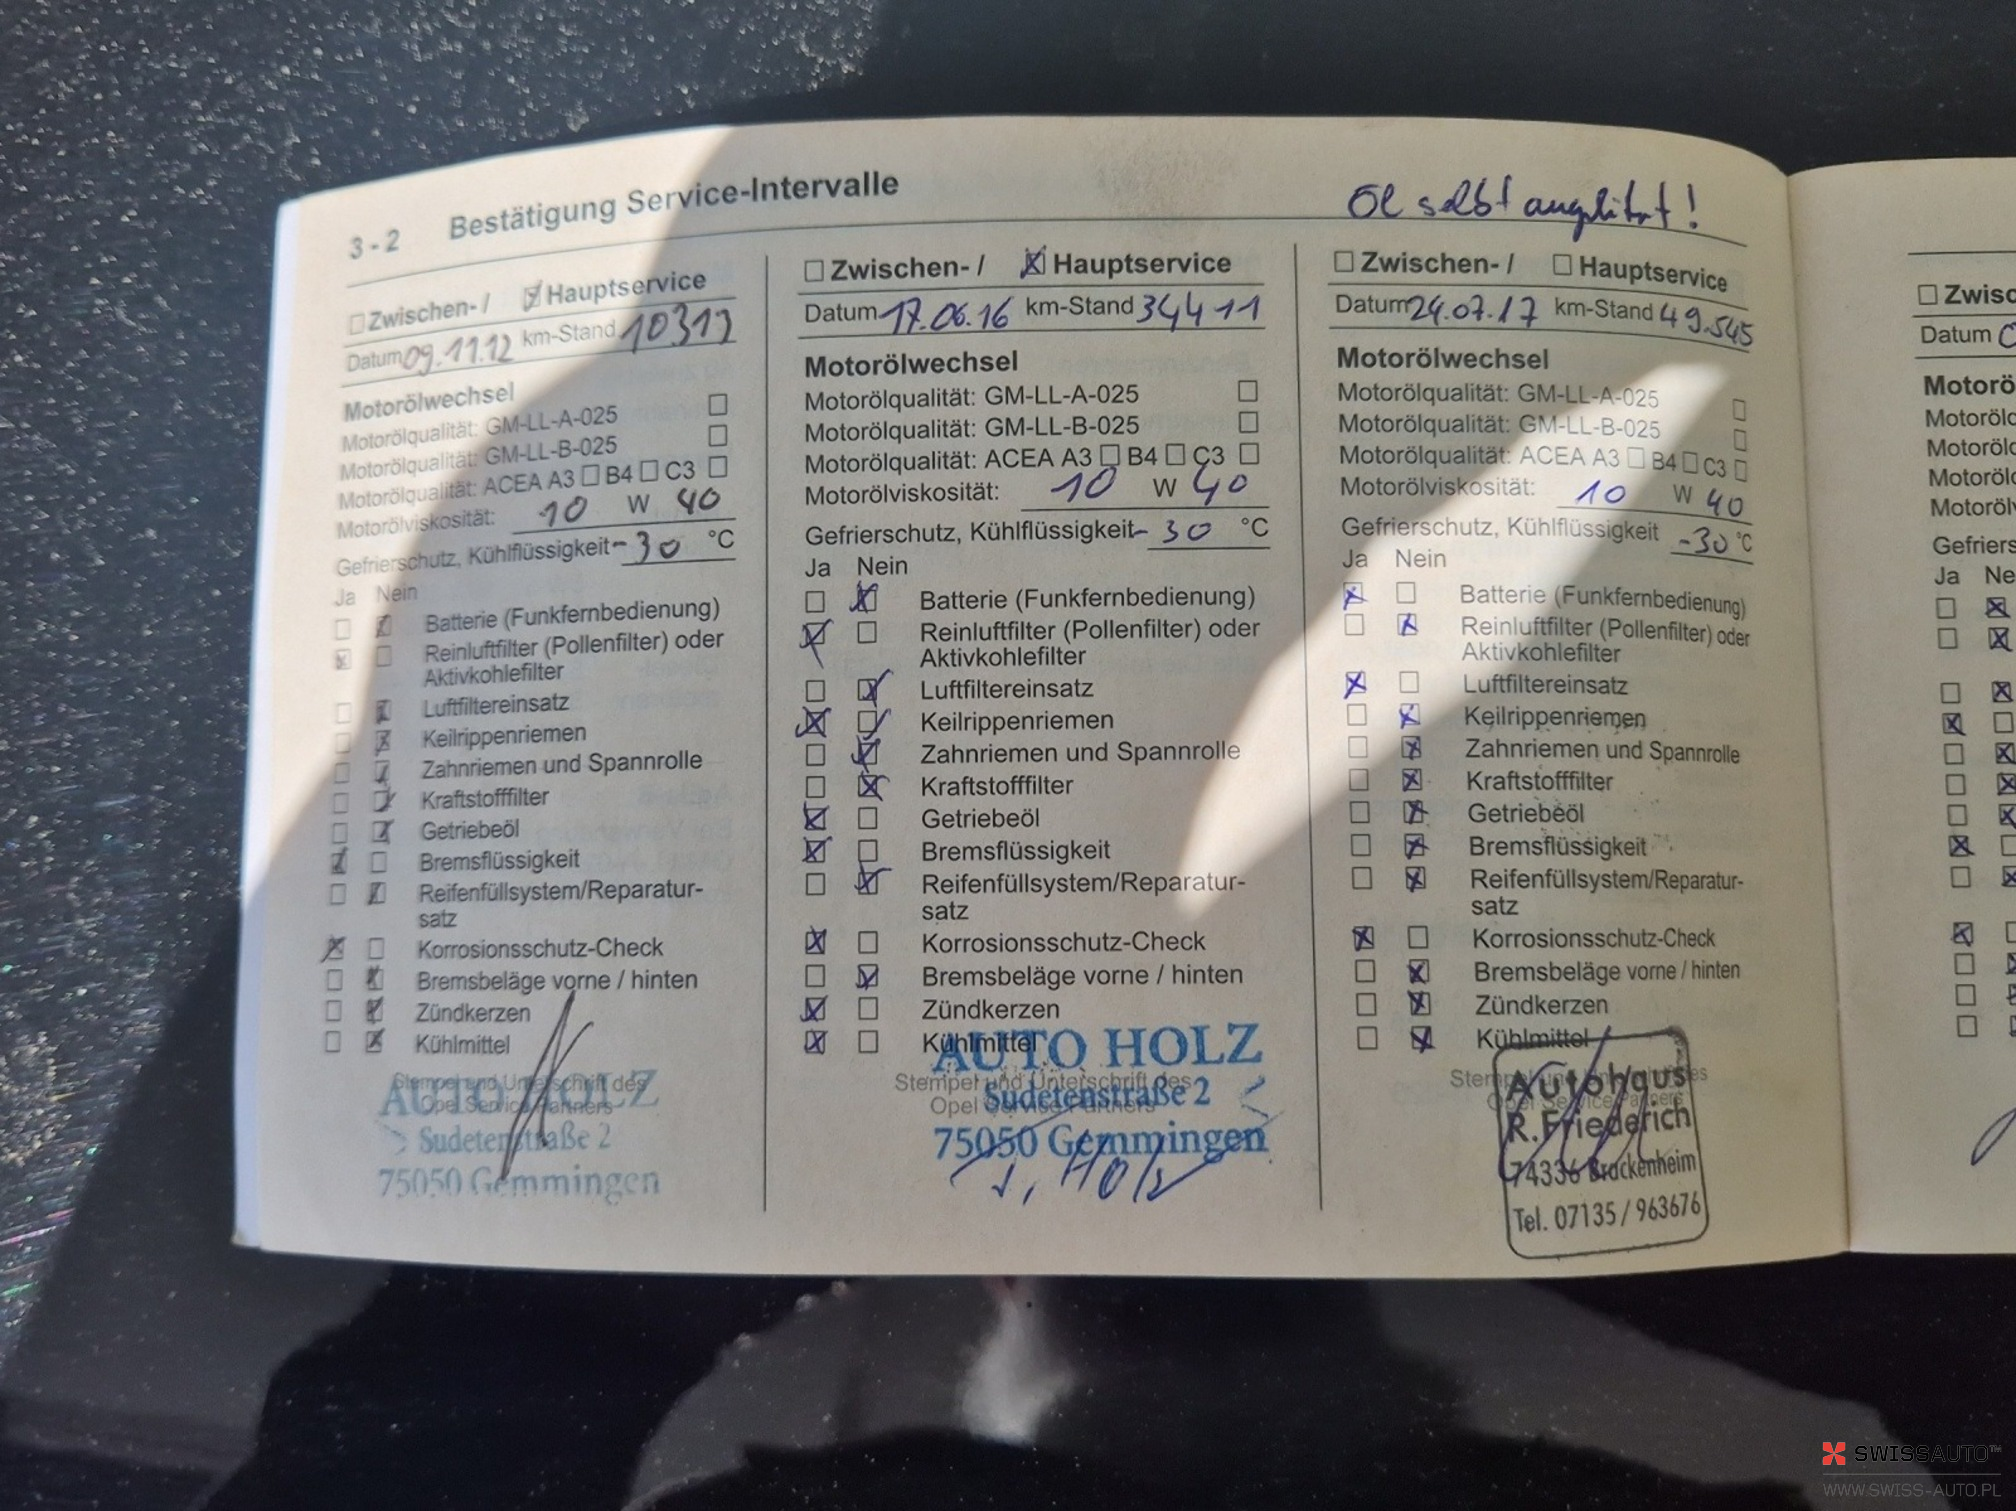 3 - 2 Bestätigung Service-Intervalle
Öl selbst angeliefert!
Zwischen- / Hauptservice
Datum 09.11.12 km-Stand 10313
Motorölwechsel
Motorölqualität: GM-LL-A-025
Motorölqualität: GM-LL-B-025
Motorölqualität: ACEA A3 B4 C3
Motorölviskosität: 10 W 40
Gefrierschutz, Kühlflüssigkeit -30 °C
Ja Nein
Batterie (Funkfernbedienung)
Reinluftfilter (Pollenfilter) oder
Aktivkohlefilter
Luftfiltereinsatz
Keilrippenriemen
Zahnriemen und Spannrolle
Kraftstofffilter
Getriebeöl
Bremsflüssigkeit
Reifenfüllsystem/Reparatur-
satz
Korrosionsschutz-Check
Bremsbeläge vorne / hinten
Zündkerzen
Kühlmittel
Stempel und Unterschrift des
Opel Service Partners
AUTO HOLZ
Sudetenstraße 2
75050 Gemmingen
Zwischen- / Hauptservice
Datum 17.06.16 km-Stand 34411
Motorölwechsel
Motorölqualität: GM-LL-A-025
Motorölqualität: GM-LL-B-025
Motorölqualität: ACEA A3 B4 C3
Motorölviskosität: 10 W 40
Gefrierschutz, Kühlflüssigkeit -30 °C
Ja Nein
Batterie (Funkfernbedienung)
Reinluftfilter (Pollenfilter) oder
Aktivkohlefilter
Luftfiltereinsatz
Keilrippenriemen
Zahnriemen und Spannrolle
Kraftstofffilter
Getriebeöl
Bremsflüssigkeit
Reifenfüllsystem/Reparatur-
satz
Korrosionsschutz-Check
Bremsbeläge vorne / hinten
Zündkerzen
Kühlmittel
AUTO HOLZ
Stempel und Unterschrift des
Opel Service Partners
Sudetenstraße 2
75050 Gemmingen
Zwischen- / Hauptservice
Datum 24.07.17 km-Stand 49.545
Motorölwechsel
Motorölqualität: GM-LL-A-025
Motorölqualität: GM-LL-B-025
Motorölqualität: ACEA A3 B4 C3
Motorölviskosität: 10 W 40
Gefrierschutz, Kühlflüssigkeit -30 °C
Ja Nein
Batterie (Funkfernbedienung)
Reinluftfilter (Pollenfilter) oder
Aktivkohlefilter
Luftfiltereinsatz
Keilrippenriemen
Zahnriemen und Spannrolle
Kraftstofffilter
Getriebeöl
Bremsflüssigkeit
Reifenfüllsystem/Reparatur-
satz
Korrosionsschutz-Check
Bremsbeläge vorne / hinten
Zündkerzen
Kühlmittel
Stempel und Unterschrift des
Opel Service Partners
Autohaus
R. Friederich
74336 Brackenheim
Tel. 07135 / 963676
Zwisc
Datum
Motorö
Motorölq
Motorölq
Motorölq
Motorölv
Gefriers
Ja Ne
SWISSAUTO™
WWW.SWISS-AUTO.PL